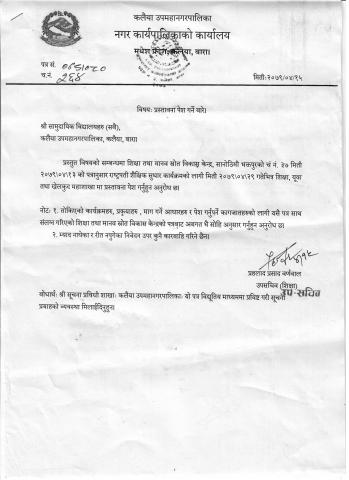 कलैया उपमहानगरपालिका
नगर कार्यपालिकाको कार्यालय
मधेश प्रदेश, कलैया, बारा।
पत्र सं. ०७८।०७९
च.नं. २६४
मिती:२०७९/०४/१५
विषय: प्रस्तावना पेश गर्ने बारे।
श्री सामुदायिक विद्यालयहरु (सवै),
कलैया उपमहानगरपालिका, कलैया, बारा
प्रस्तुत विषयको सम्बन्धमा शिक्षा तथा मानव स्रोत विकास केन्द्र, सानोठिमी भक्तपुरको चं नं. ३७ मिती
२०७९/०४/१२ को पत्रानुसार राष्ट्रपती शैक्षिक सुधार कार्यक्रमको लागी मिती २०७९/०४/२९ गतेभित्र शिक्षा, युवा
तथा खेलकुद महाशाखा मा प्रस्तावना पेश गर्नुहुन अनुरोध छ।
नोट: १. तोकिएको कार्यक्रमहरु, प्रकृयाहरु , माग गर्ने आधारहरु र पेश गर्नुपर्ने कागजातहरुको लागी यसै पत्र साथ
संलग्न गरिएको शिक्षा तथा मानव स्रोत विकास केन्द्रको पत्रबाट अवगत भै सोहि अनुसार गर्नुहुन अनुरोध छ।
२. म्याद नाघेका र रीत नपुगेका निवेदन उपर कुनै कारवाहि गरिने छैन।
प्रहलाद प्रसाद बर्णवाल
उपसचिव (शिक्षा)
उप-सचिव
बोधार्थ: श्री सूचना प्रविधी शाखा: कलैया उपमहानगरपालिका: यो पत्र विद्युतिय माध्यममा प्रविष्ट गरी सूचना
प्रवाहको व्यवस्था मिलाईदिनुहुन।